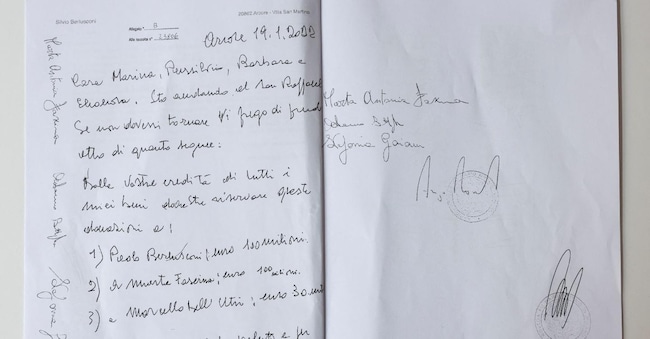 Silvio Berlusconi
20862 Arcore - Villa San Martino
Allegato "B"
Alla raccolta n°
Arcore 19.1.2022
Cara Marina, Piersilvio, Barbara e
Eleonora, Sto andando al San Raffaele
Se non dovessi tornare Vi prego di prend
atto di quanto segue:
Dalle vostre eredità di tutti i
miei beni dovreste riservare queste
donazioni a:
1) Paolo Berlusconi; euro 100 milioni.
2) a Marta Fascina; euro 100 milioni.
3) a Marcello Dell'Utri; euro 30 mil
Marta Antonia Fascina
Marta Antonia Fascina
Stefania